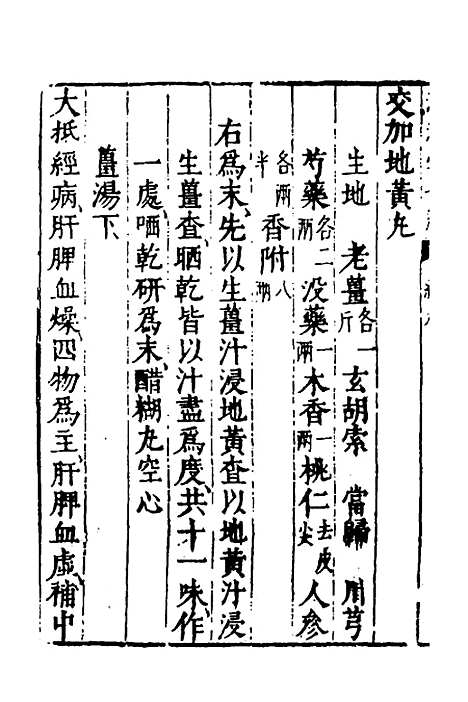 交加地黃丸
生地　老薑各一斤玄胡索　當歸　川芎
芍藥各二兩沒藥一兩木香一兩桃仁去皮尖人參
各兩半香附八兩
右爲末先以生薑汁浸地黃查以地黃汁浸
生薑查晒乾皆以汁盡爲度共十一味作
一處晒乾研爲末醋糊丸空心
薑湯下
大抵經病肝脾血燥四物爲主肝脾血虛補中